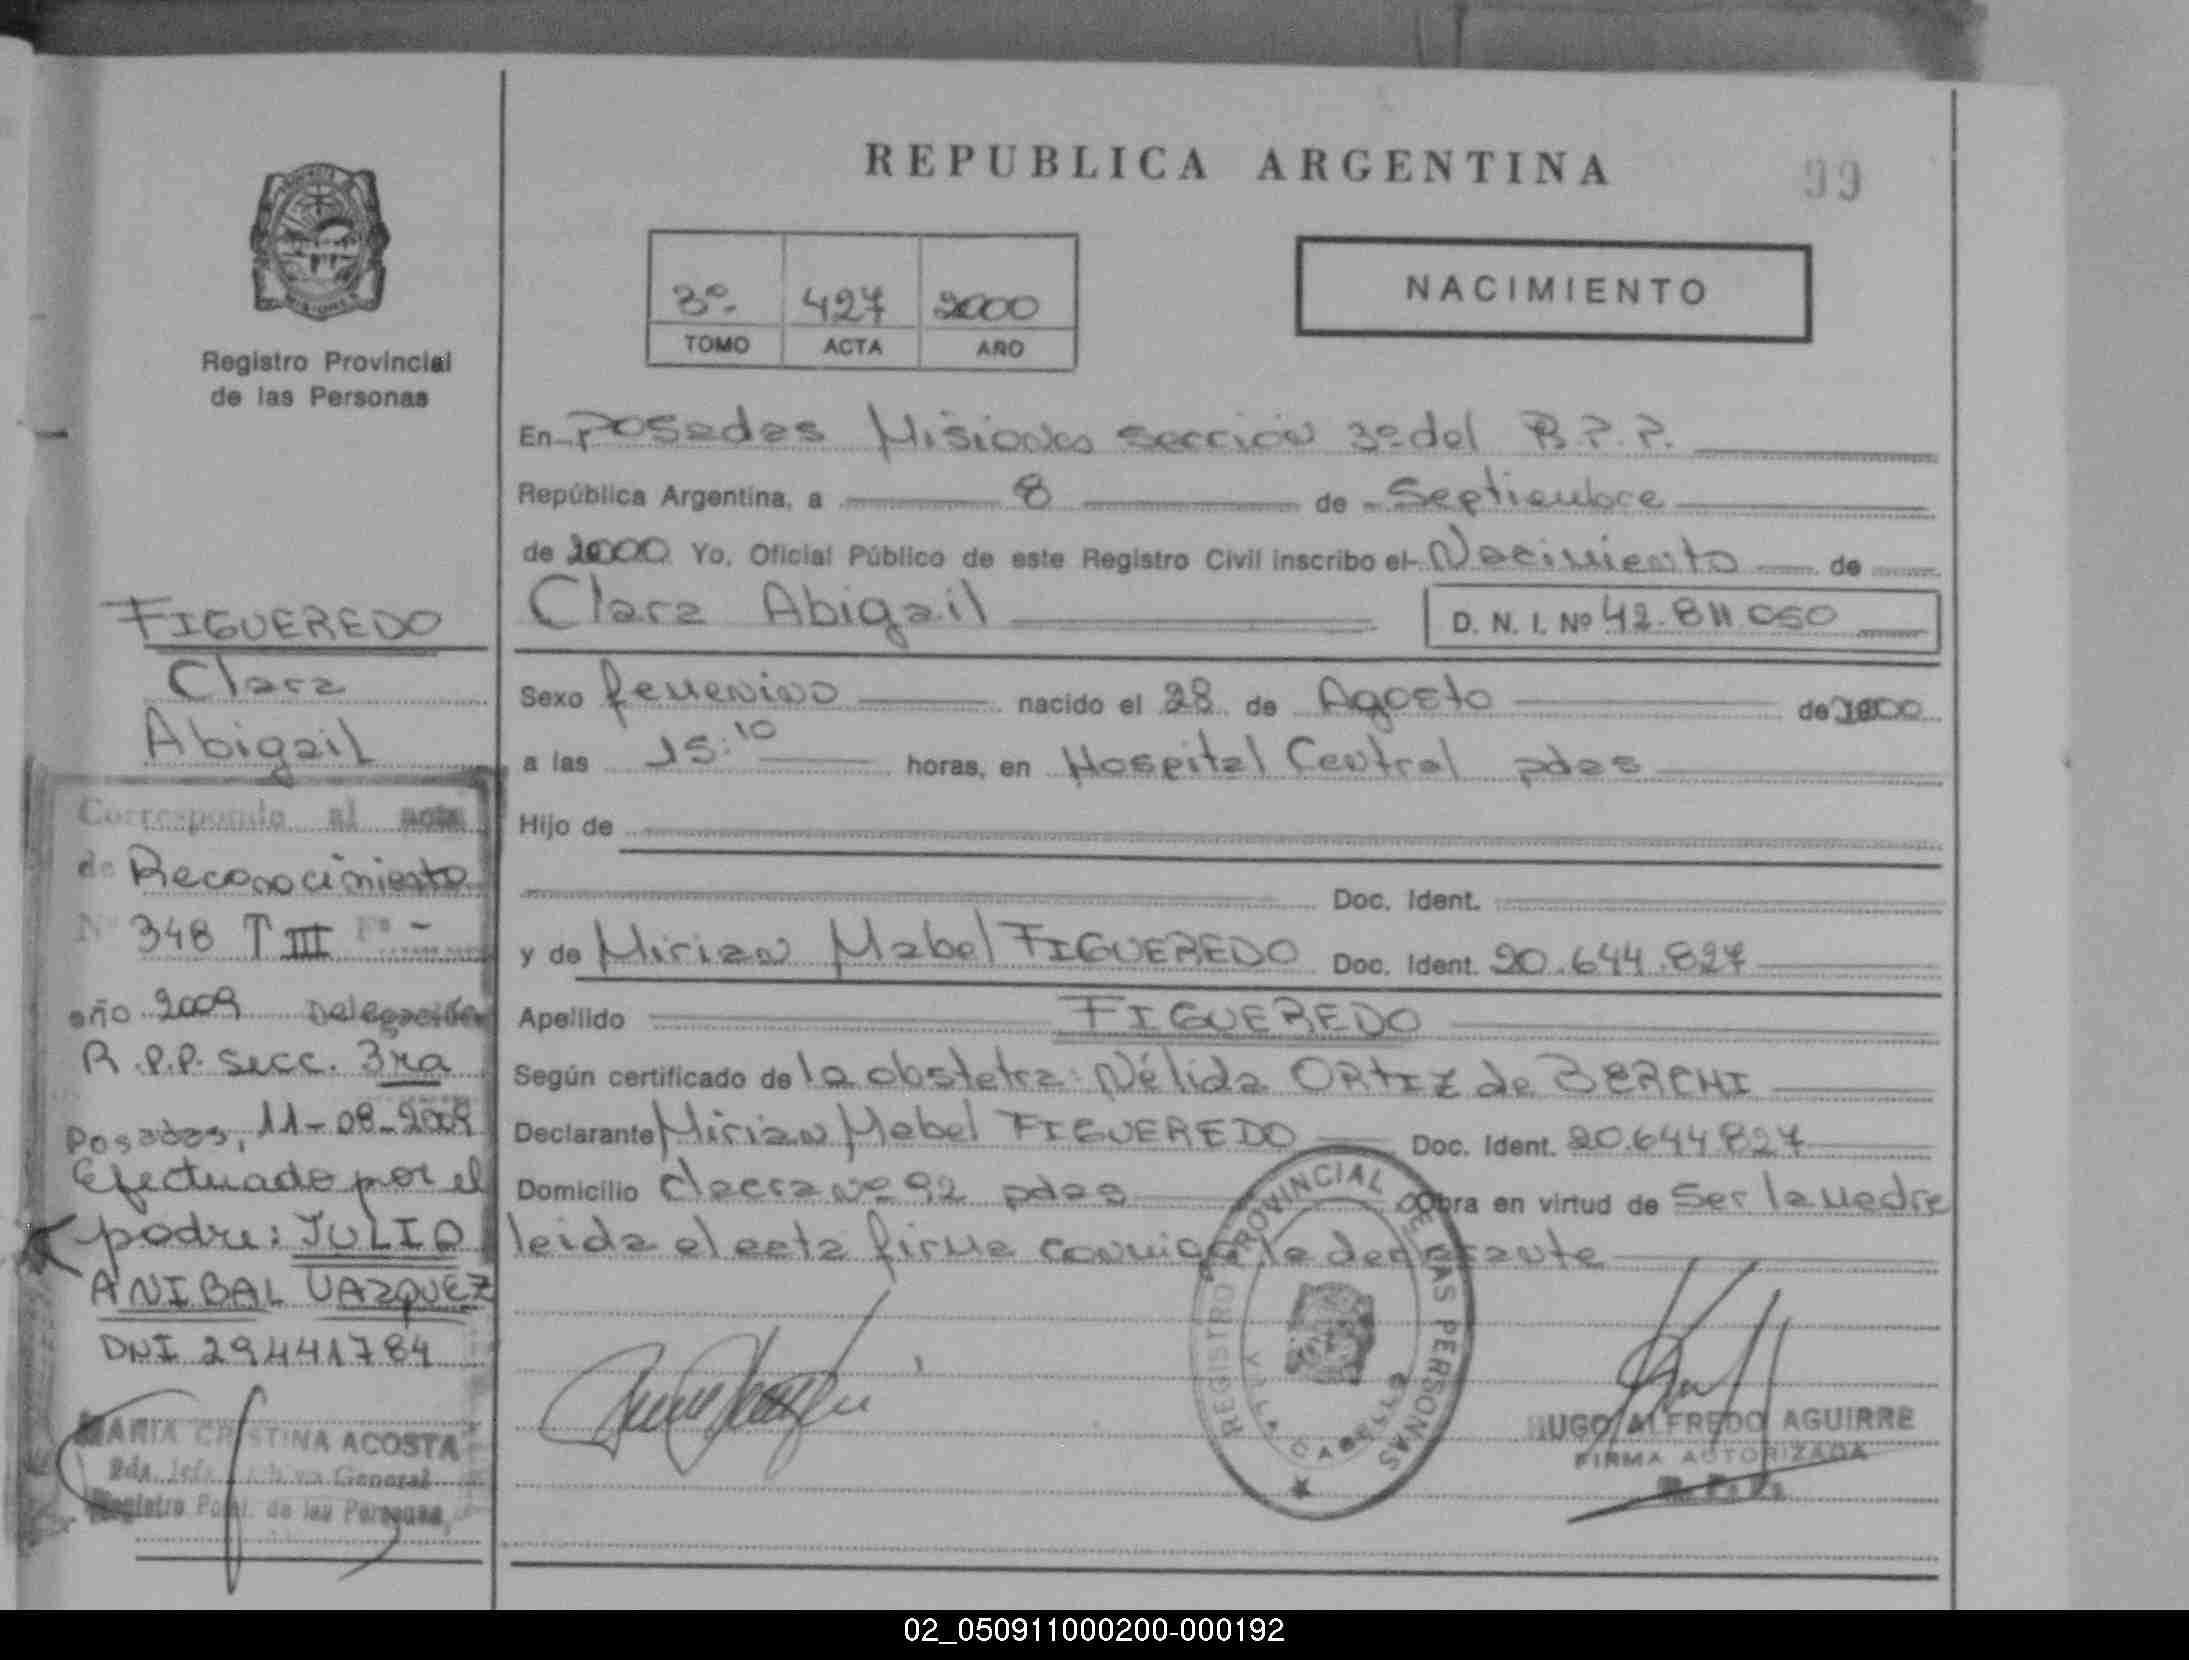 REPUBLICA ARGENTINA
99
3º 427 2000
TOMO ACTA AÑO
NACIMIENTO
Registro Provincial
de las Personas
En Posadas Misiones sección 3º del R.P.P.
República Argentina, a 8 de Septiembre
de 2000 Yo, Oficial Público de este Registro Civil inscribo el Nacimiento de
Clara Abigail D. N. I. Nº 42.811050
Sexo femenino nacido el 28 de Agosto de 2000
a las 15:10 horas, en Hospital Central pdas
Hijo de
Doc. Ident.
y de Mirian Mabel FIGUEREDO Doc. Ident. 20.644.827
Apellido FIGUEREDO
Según certificado de la obstetra: Nélida ORTIZ de BERCHI
Declarante Mirian Mabel FIGUEREDO Doc. Ident. 20.644.827
Domicilio chacra nº 92 pdas Obra en virtud de Ser la madre
leida el acta firma conmigo la declarante
REGISTRO PROVINCIAL DE LAS PERSONAS
HUGO ALFREDO AGUIRRE
FIRMA AUTORIZADA
R. P. P.
FIGUEREDO
Clara
Abigail
Corresponde al acta
de Reconocimiento
Nº 348 T III Fº -
año 2009 Delegación
R.P.P. secc. 3ra
Posadas, 11-08-2009
Efectuado por el
padre: JULIO
ANIBAL VAZQUEZ
DNI 29441784
MARIA CRISTINA ACOSTA
General
Registro Pcial. de las Personas
02_050911000200-000192